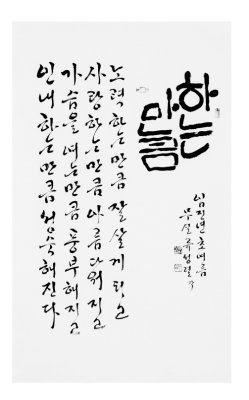 하는
만큼
노력하는만큼 잘 살게 되고
사랑하는만큼 아름다워지고
가슴을 여는만큼 풍부해지고
인내하는만큼 성숙해진다
임진년초여름
무실 류성렬